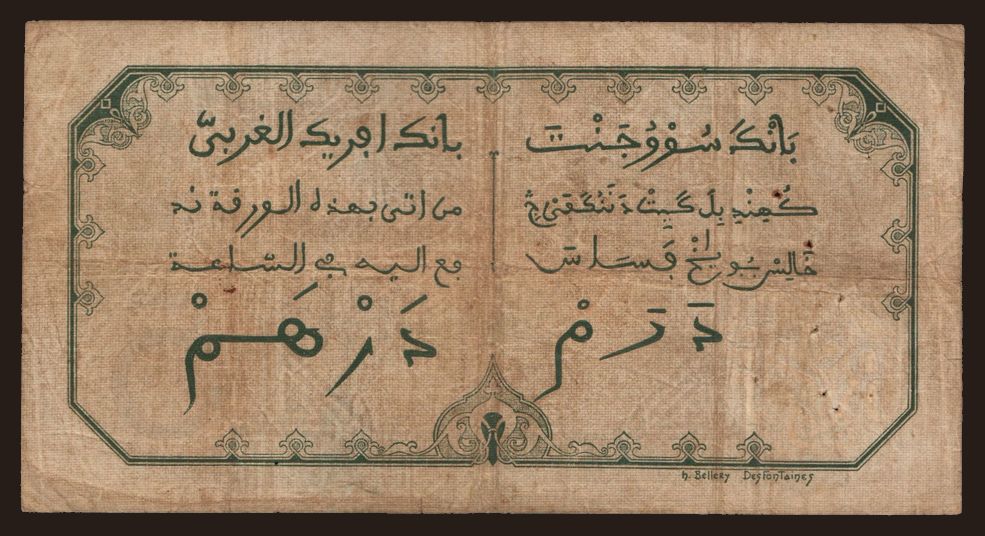 بَانْكَ سُوْوُجَنْتَ
كُمِنْدِ بِلَ كَيِتْ دَنَنُكَقَىٰ
خَالِسْ بُويرِخْ فَسَاسَ
دَرَمْ
بانك افريك الغربىّ
من اتى بهذه الورقة ند
فع اليه في الساعة
دَرْهَمْ
h. Bellery Desfontaines